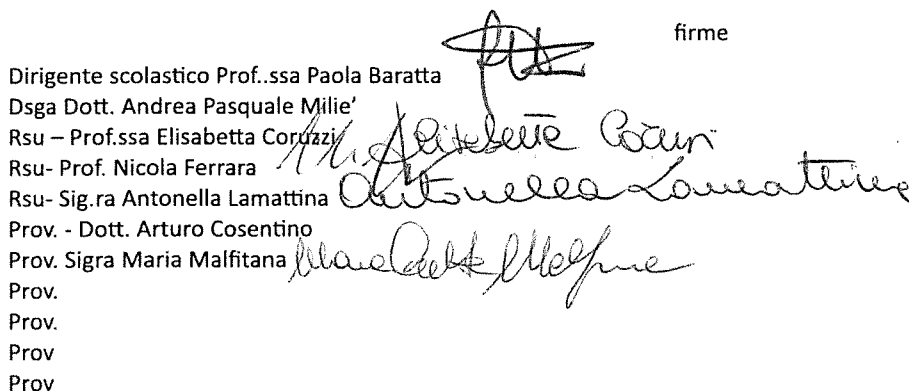 firme
Dirigente scolastico Prof..ssa Paola Baratta
Dsga Dott. Andrea Pasquale Milie’
Rsu – Prof.ssa Elisabetta Coruzzi Elisabetta Coruzzi
Rsu- Prof. Nicola Ferrara
Rsu- Sig.ra Antonella Lamattina Antonella Lamattina
Prov. - Dott. Arturo Cosentino
Prov. Sigra Maria Malfitana
Prov.
Prov.
Prov
Prov